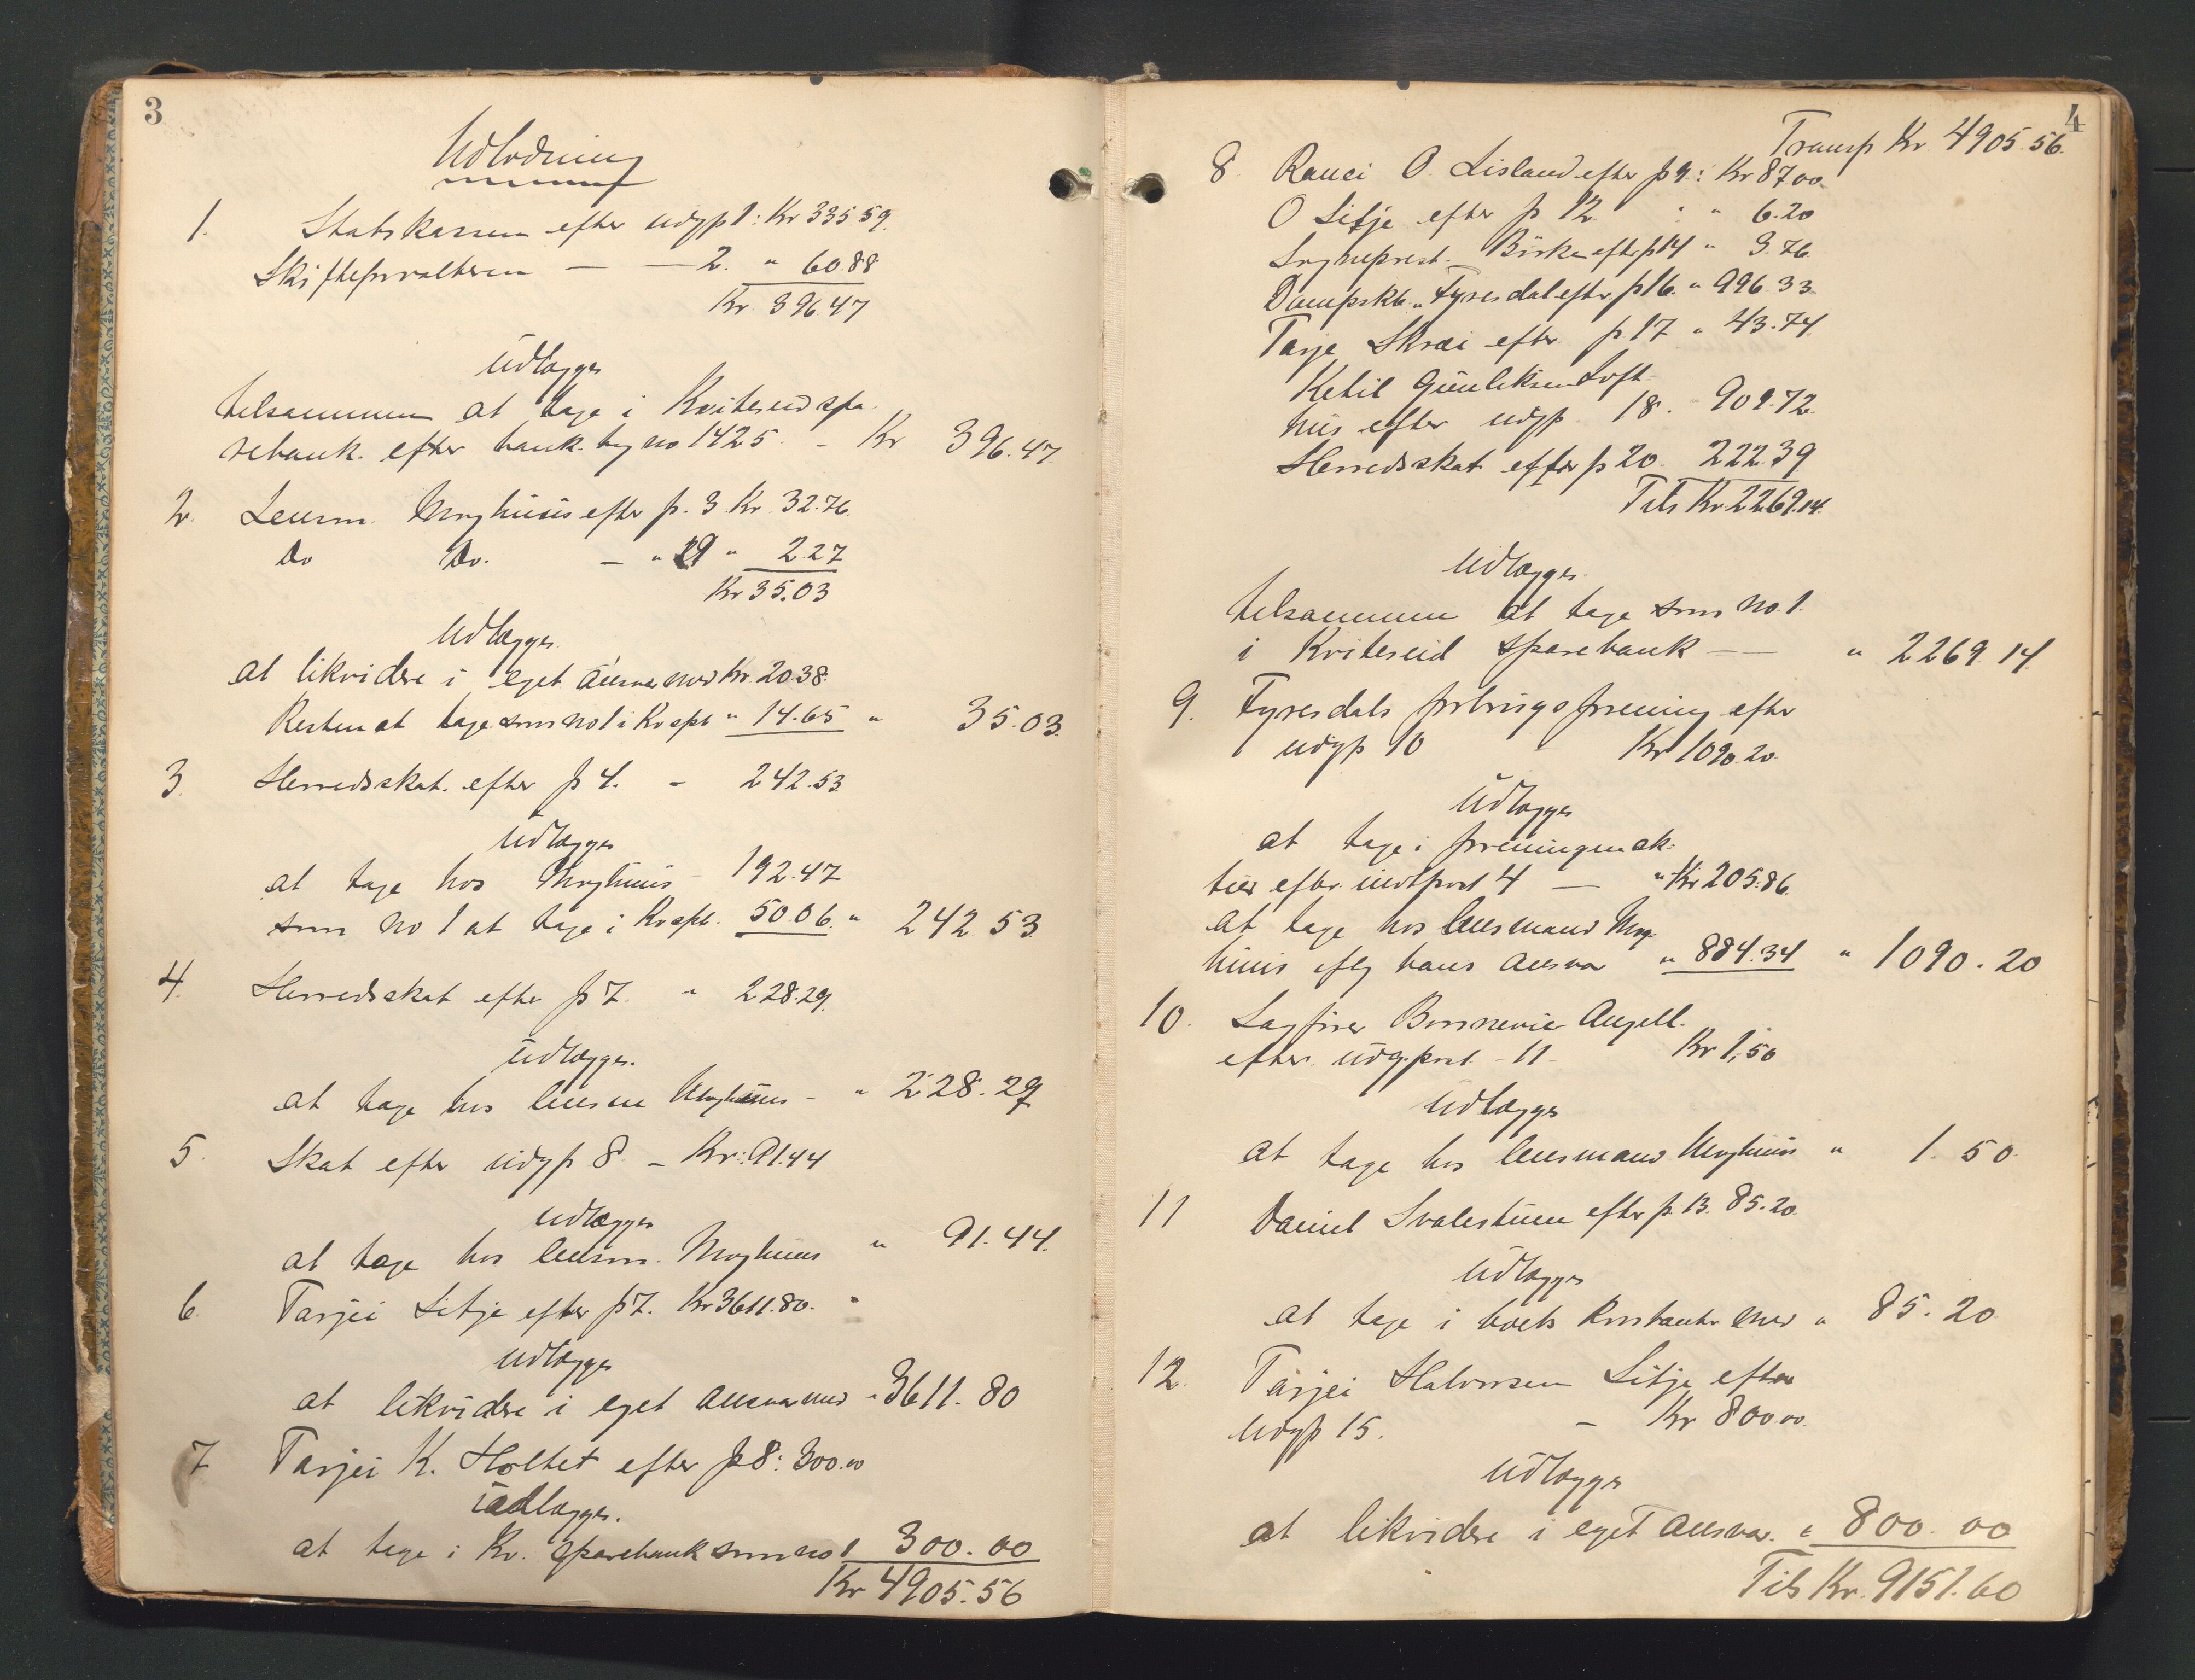 3
Udlodning
1. Statskassen efter udgp 1: Kr 335.59.
Skifteforvalteren — — 2. " 60.88
Kr 396.47
Udlægges
tilsammen at tage i Kviteseid spa-
rebank efter bank bog no 1425 - Kr 396.47
2. Lensm. Moghuus efter p. 3 Kr. 32.76.
Do Do. — " 19 " 2.27
Kr 35.03
Udlægges
at likvidere i eget ansvar med Kr. 20.38.
Resten at tage som no 1 i Kv spb " 14.65 " 35.03.
3. Herredsskat efter p 4. - 242.53
Udlægges
at tage hos Moghuus - 192.47
som no 1 at tage i Kv spb. 50.06. " 242 53
4. Herredsskat efter p 7. " 228.29.
Udlægges.
at tage hos lensm Moghuus - " 228.29
5. Skat efter udgp 8. - Kr: 91.44
Udlægges
at tage hos lensm. Moghuus " 91.44.
6. Tarjei Sitje efter p 7. Kr 3611.80. "
Udlægges
at likvidere i eget ansvar med " 3611.80
7 Tarjei K. Holtet efter p 8: 300.00
Udlægges.
at tage i Kv. sparebank som no 1 300.00
Kr 4905.56
4
Transp Kr 4905.56.
8. Ranei O. Lisland efter p 9: Kr 87.00
O Sitje efter p 12 : " 6.20
Sogneprest Birke efter p 14 " 3.76.
Dampskb. "Fyresdal efter p 16. " 996.33
Tarje Skrai efter p. 17 " 43.74.
Ketil Gunleiksen Loft-
hus efter udgp. 18. - 909.72.
Herredsskat efter p 20. 222.39
Tils Kr 2269.14
Udlægges.
tilsammen at tage som no. 1.
i Kviteseid sparebank — " 2269.14
9. Fyresdals forbrugsforening efter
udgp 10 " Kr 1090.20
Udlægges
at tage i foreningen ak-
tier efter indtpost 4 — " Kr 205.86.
at tage hos lensmand Mog-
huus iflg hans ansvar " 884.34 " 1090.20
10. Sagfører Bonnevie Angell.
efter udg.post - 11 - Kr 1,50
Udlægges
at tage hos lensmand Moghuus " 1.50
11 Daniel Svalestuen efter p. 13. 85.20.
Udlægges
at tage i boets kontanter med " 85.20
12. Tarjei Halvorsen Sitje efter
udgp 15. - Kr 800.00.
Udlægges
at likvidere i eget ansvar. " 800.00
Tils Kr. 9151.60